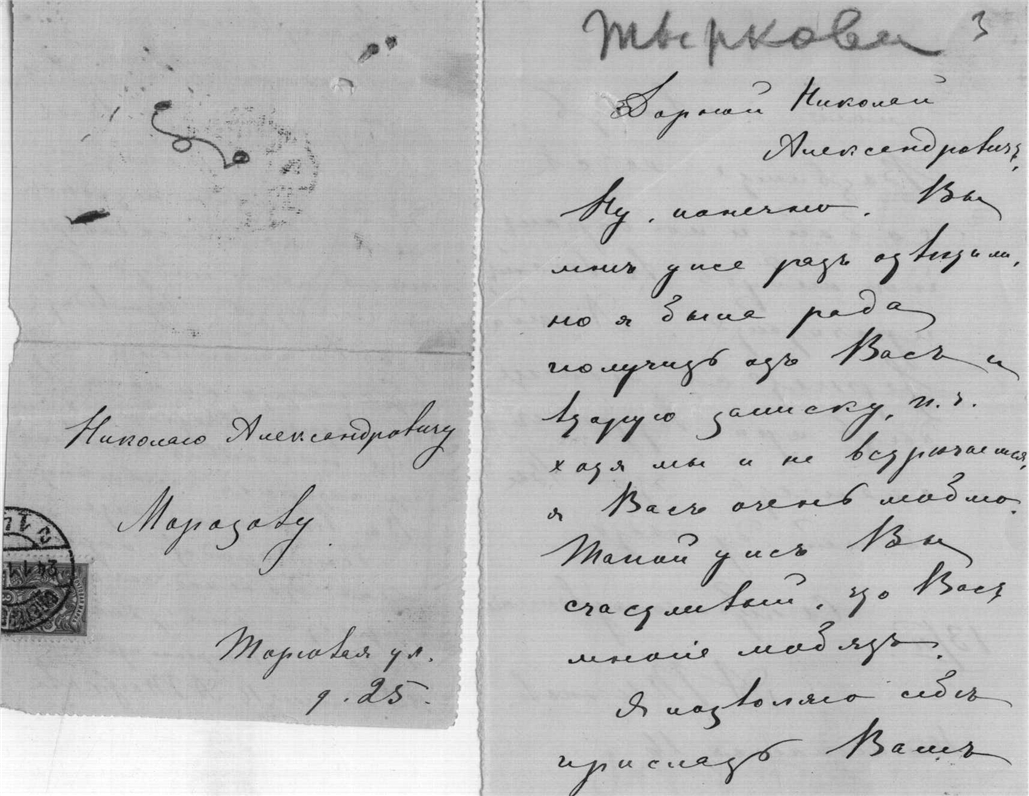 Николаю Александровичу
Морозову
Торговая ул.
д. 25.
Тыркова 3
Дорогой Николай
Александровичъ,
Ну, конечно, Вы
мнѣ уже разъ отвѣтили,
но я была рада
получить отъ Васъ и
вторую записку, п. ч.
хотя мы и не встрѣчаемся,
я Васъ очень люблю.
Такой ужъ Вы
счастливый, что Васъ
многіе любятъ.
Я позволяю себѣ
прислать Вамъ